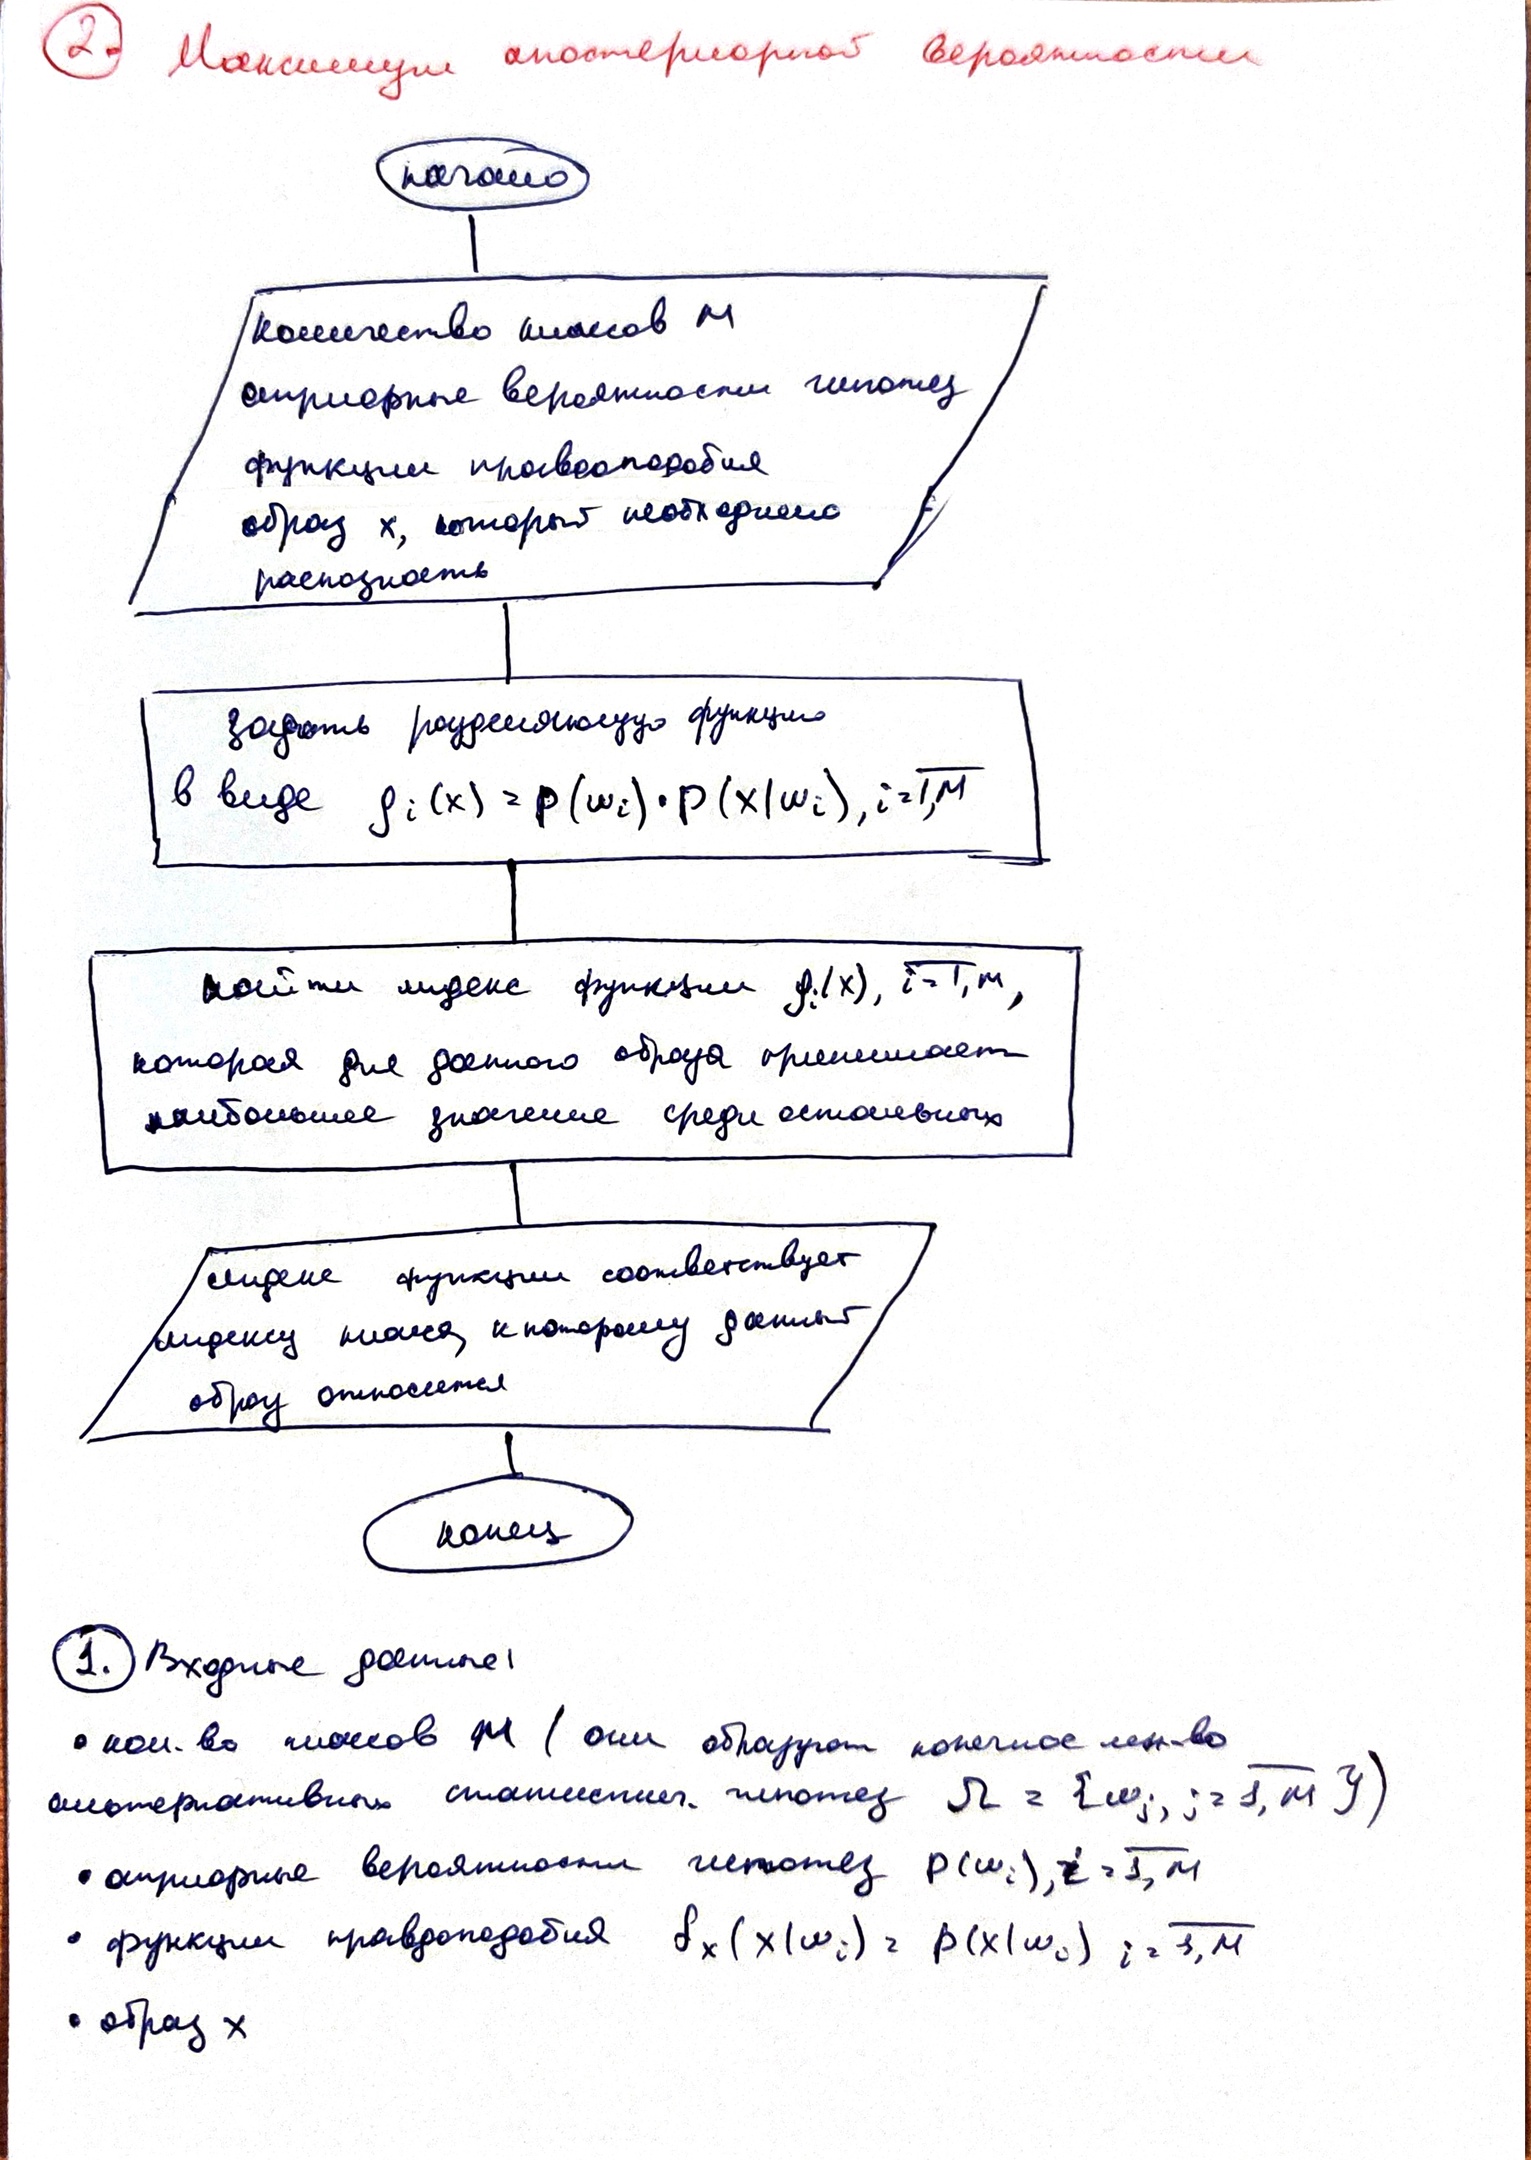 2. Максимум апостериорной вероятности
начало
количество классов M
априорные вероятности гипотез
функции правдоподобия
образ x, который необходимо
распознать
задать разделяющую функцию
в виде g_i(x) = p(w_i) · p(x|w_i), i = 1,M
найти индекс функции g_i(x), i = 1,M,
которая для данного образа принимает
наибольшее значение среди остальных
индекс функции соответствует
индексу класса, к которому данный
образ относится
конец
1. Входные данные:
• кол-во классов M (они образуют конечное мн-во
альтернативных статистич. гипотез Ω = {w_j, j = 1,M})
• априорные вероятности гипотез p(w_i), i = 1,M
• функции правдоподобия f_x(x|w_i) = p(x|w_i) i = 1,M
• образ x